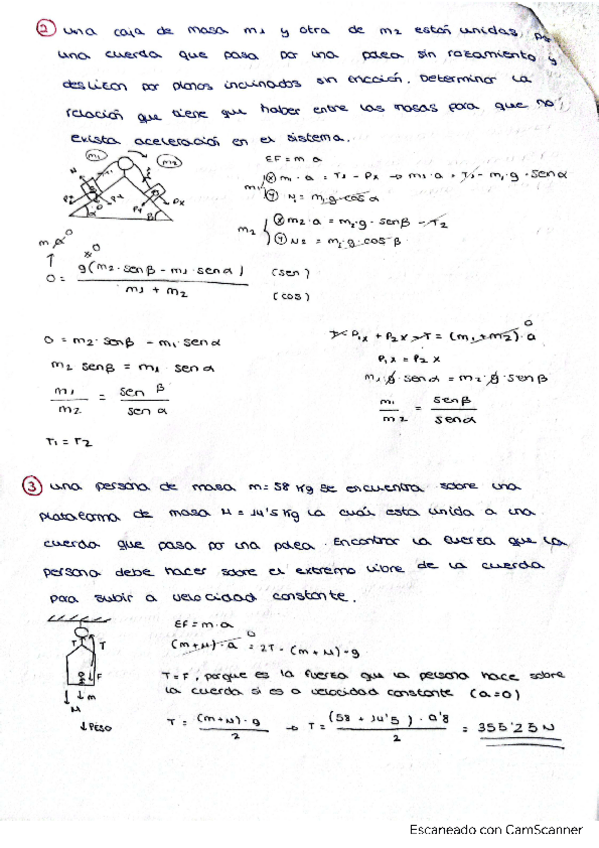 ② una caja de masa m₁ y otra de m₂ están unidas por
una cuerda que pasa por una polea sin rozamiento y
deslizan por planos inclinados sin fricción. Determinar la
relación que tiene que haber entre las masas para que no
exista aceleración en el sistema.
m₁ m₂
ΣF = m·a
m₁ { ⓧ m₁·a = T₁ - Pₓ → m₁·a = T₁ - m₁·g·senα
ⓨ N = m₁·g·cosα
m₂ { ⓧ m₂·a = m₂·g·senβ - T₂
ⓨ N₂ = m₂·g·cosβ
0 = g(m₂·senβ - m₁·senα) / m₁ + m₂
(sen)
(cos)
0 = m₂·senβ - m₁·senα
m₂ senβ = m₁·senα
m₁/m₂ = senβ/senα
T₁ = T₂
P₁ₓ + P₂ₓ = (m₁+m₂)·a 0
P₁ₓ = P₂ₓ
m₁·g·senα = m₂·g·senβ
m₁/m₂ = senβ/senα
③ una persona de masa m = 58 kg se encuentra sobre una
plataforma de masa M = 14'5 kg la cual esta unida a una
cuerda que pasa por una polea. Encontrar la fuerza que la
persona debe hacer sobre el extremo libre de la cuerda
para subir a velocidad constante.
ΣF = m·a
(m+M)·a 0 = 2T - (m+M)·g
T = F, porque es la fuerza que la persona hace sobre
la cuerda si es a velocidad constante (a=0)
T T
F
m
M
↓ PESO
T = (m+M)·g / 2 → T = (58 + 14'5)·9'8 / 2 = 355'25 N
Escaneado con CamScanner